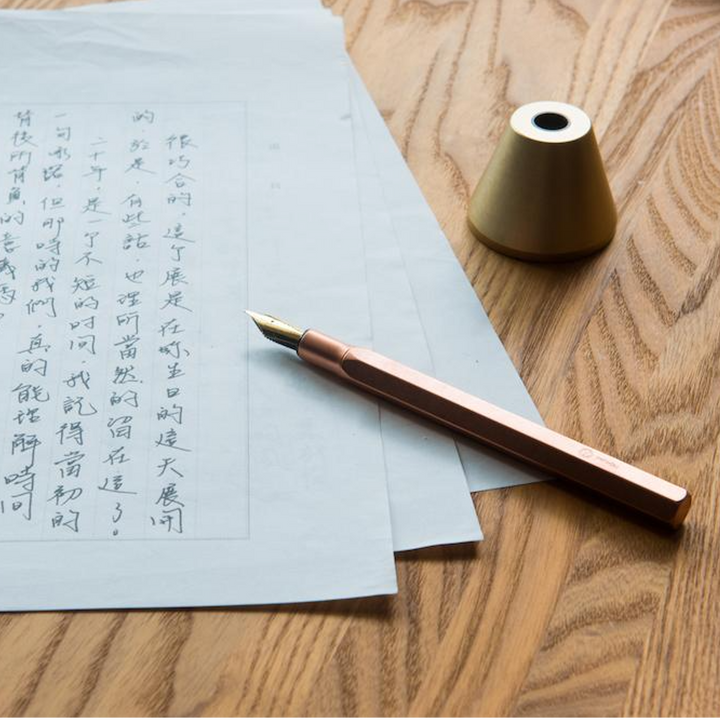 很巧合的,這个展是在你生日的這天展開
的,於是,有些話,也理所當然的留在這了。
二十年,是一个不短的时间,我記得當初的
一句承諾,但那時的我們,真的能理解時间
背後所背負的意義嗎?